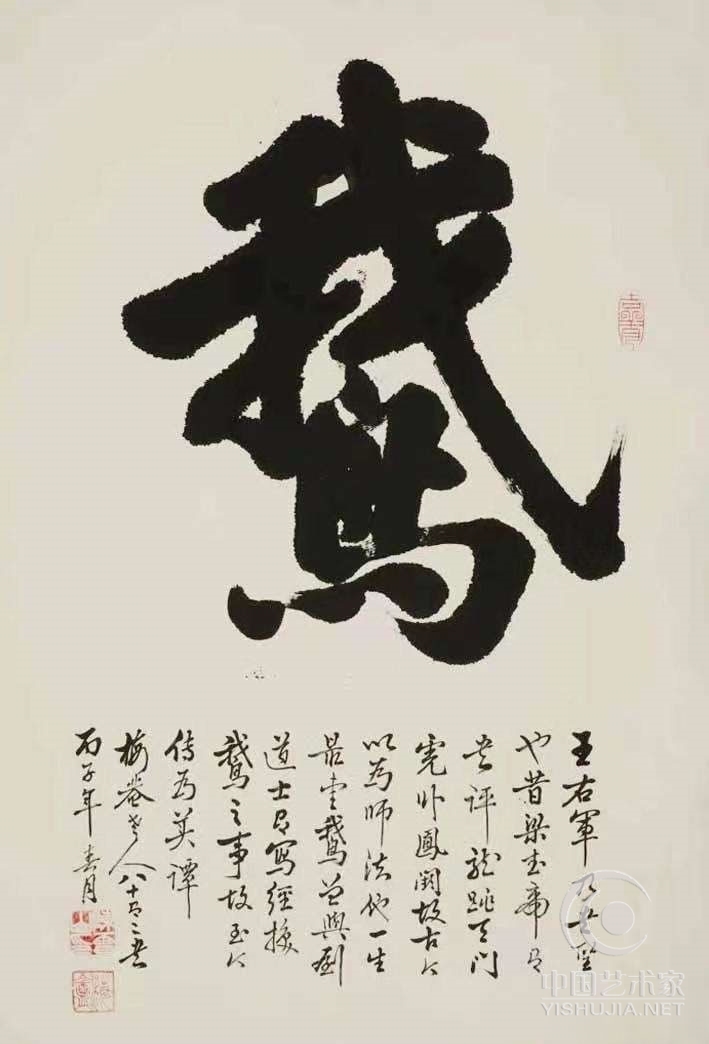 鵞
王右軍乃書聖
也昔梁武帝有
書評龍跳天門
虎卧鳳闕故古今
以為師法他一生
最愛鵞曾與劉
道士有寫經換
鵞之事故至今
傳為美譚
梅菴老人八十有二書
丙子年春月
中国艺术家
YISHUJIA.NET